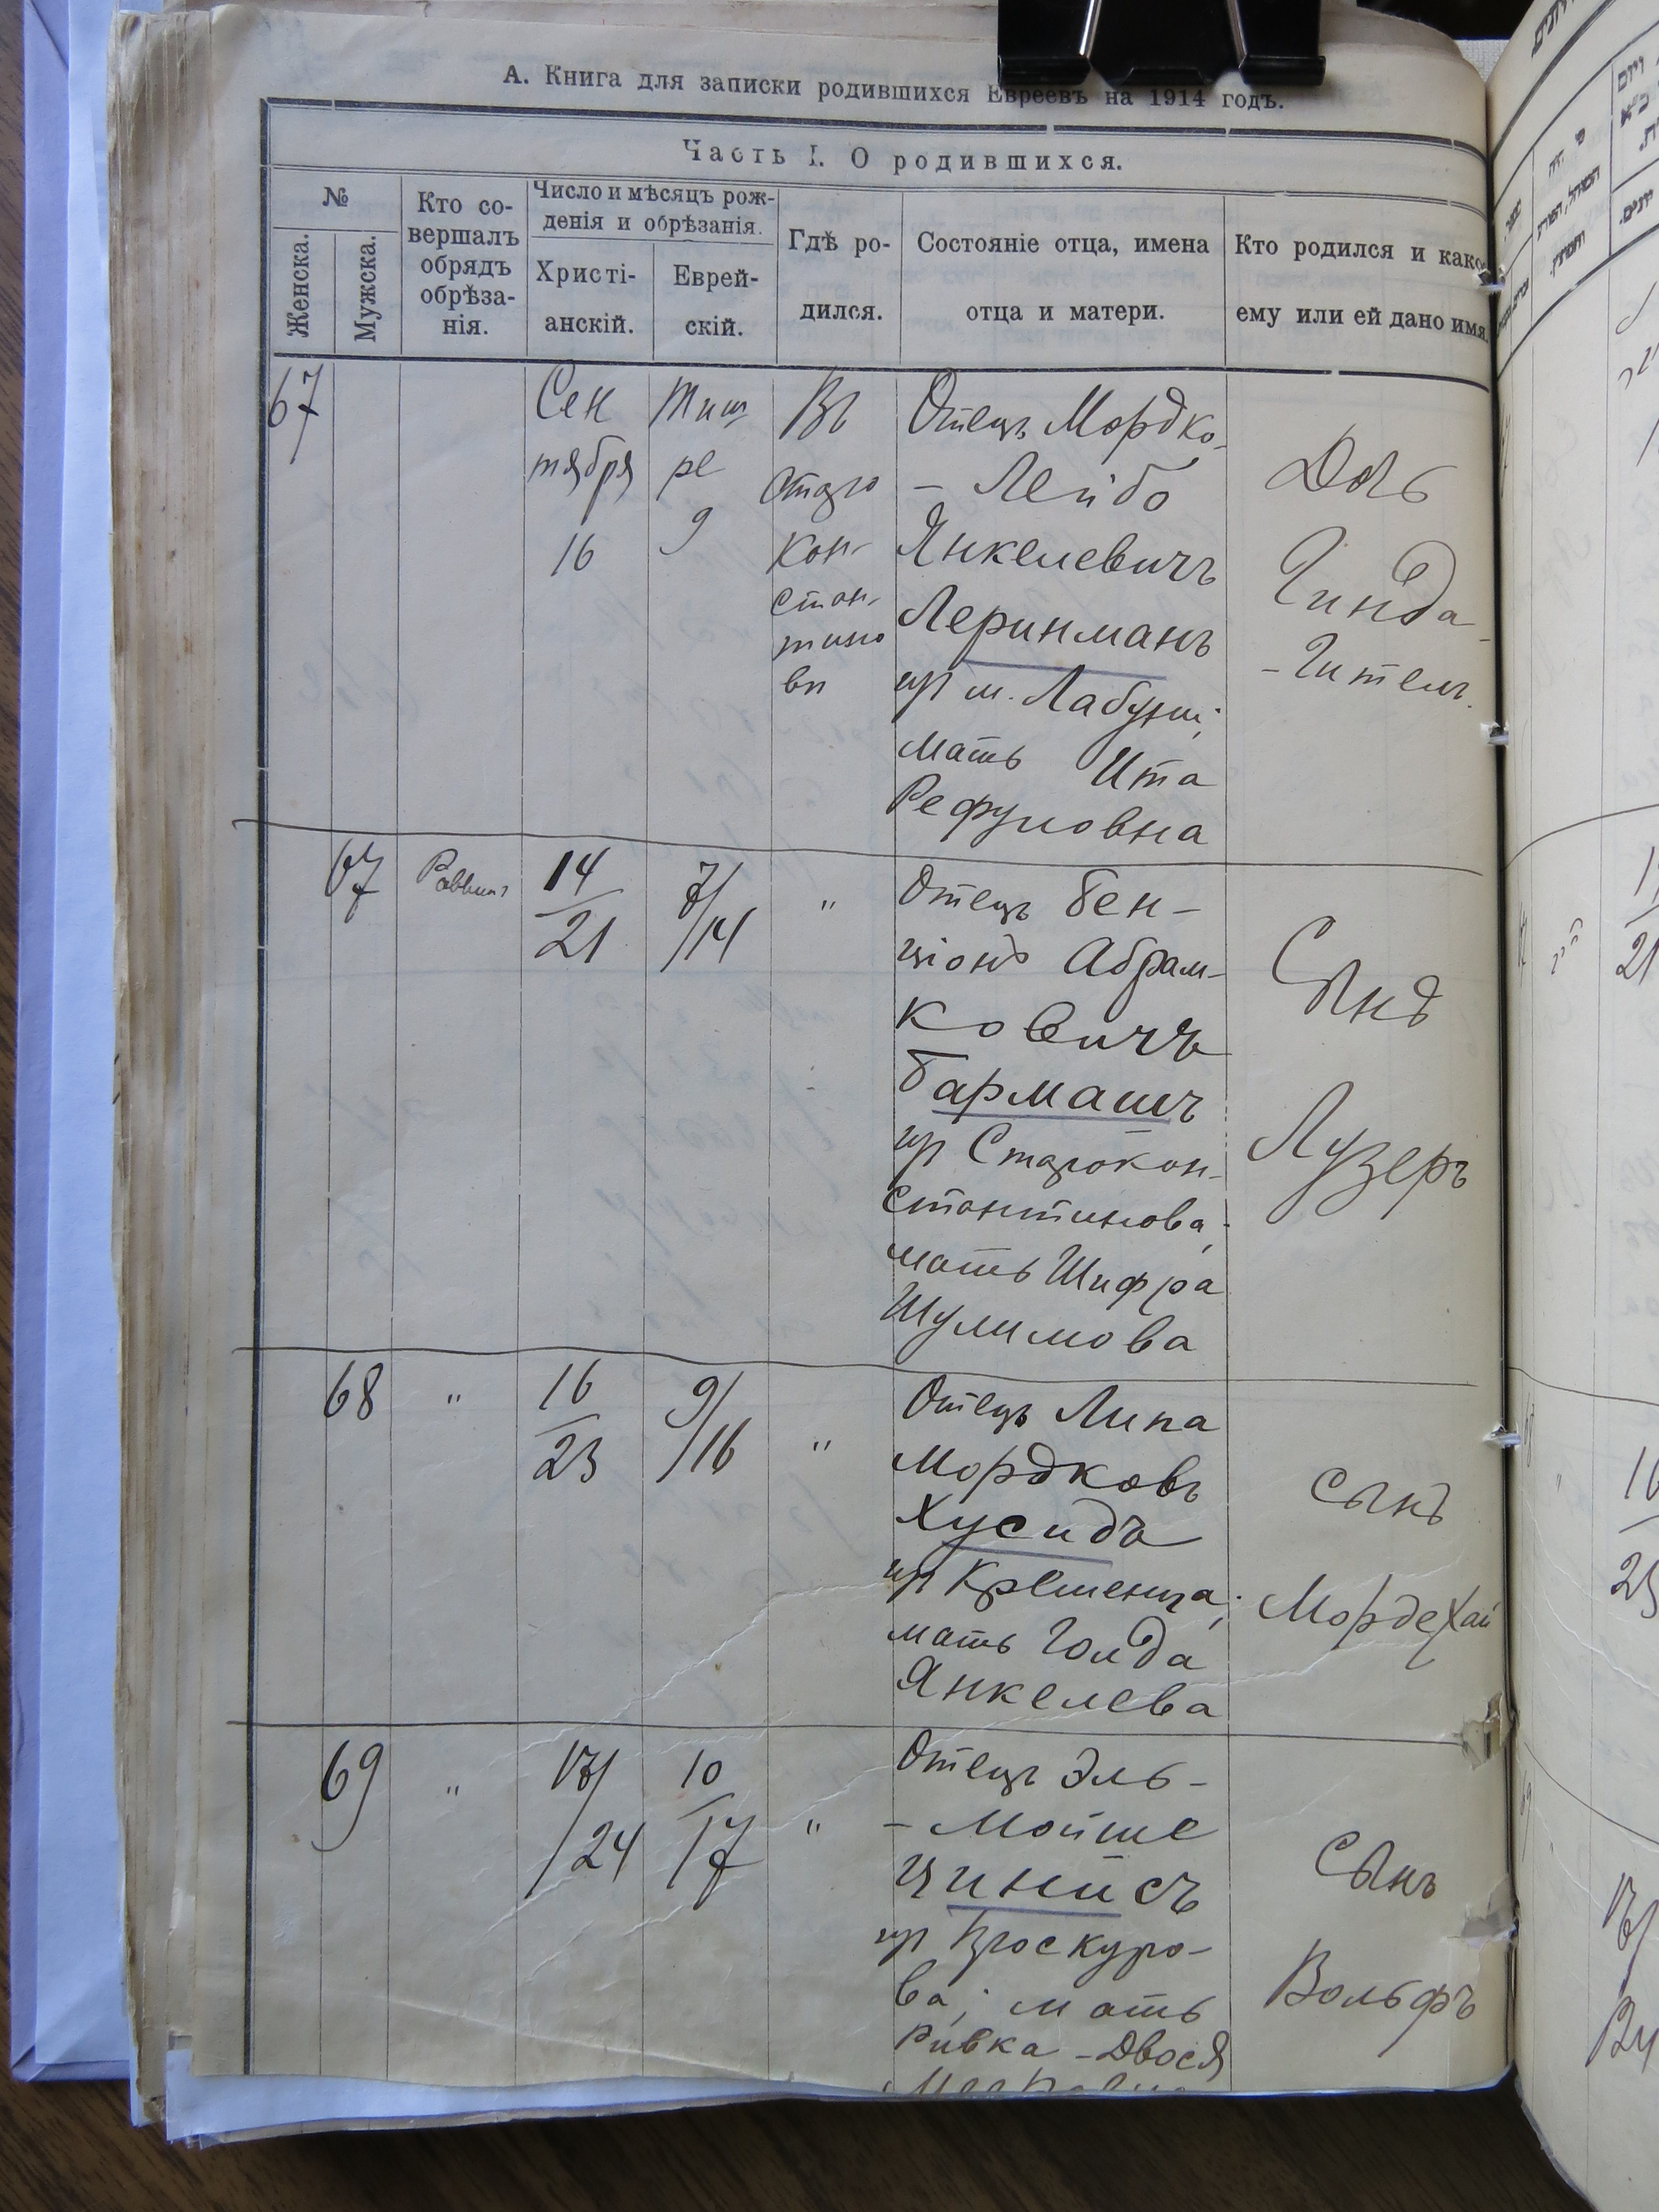 А. Книга для записки родившихся Евреевъ на 1914 годъ.
Часть I. О родившихся.
№
Женска.
Мужска.
Кто со-
вершалъ
обрядъ
обрѣза-
нія.
Число и мѣсяцъ рож-
денія и обрѣзанія.
Христі-
анскій.
Еврей-
скій.
Гдѣ ро-
дился.
Состояніе отца, имена
отца и матери.
Кто родился и како
ему или ей дано имя.
67
Сен
тября
16
Тиш
ре
9
Въ
Старо
кон-
стан-
тино
вѣ
Отецъ Мордко-
- Лейбо
Янкелевичъ
Леринманъ
изъ м. Лабунь;
мать Ита
Рефуловна
Дочь
Гинда-
-Гитель.
67
Раввинъ
14
21
7/
/14
"
Отецъ Бен-
ціонъ Абрам-
ковичъ
Бармашъ
изъ Старокон-
стантинова;
мать Шифра
Шулимова
Сынъ
Лузеръ
68
"
16
23
9/
/16
"
Отецъ Липа
Мордковъ
Хусидъ
изъ Кременца;
мать Голда
Янкелева
Сынъ
Мордехай
69
"
17/
/24
10
/17
"
Отецъ Эль-
- Мойше
Цинисъ
изъ Проскуро-
ва; мать
Ривка-Двося
Сынъ
Вольфъ